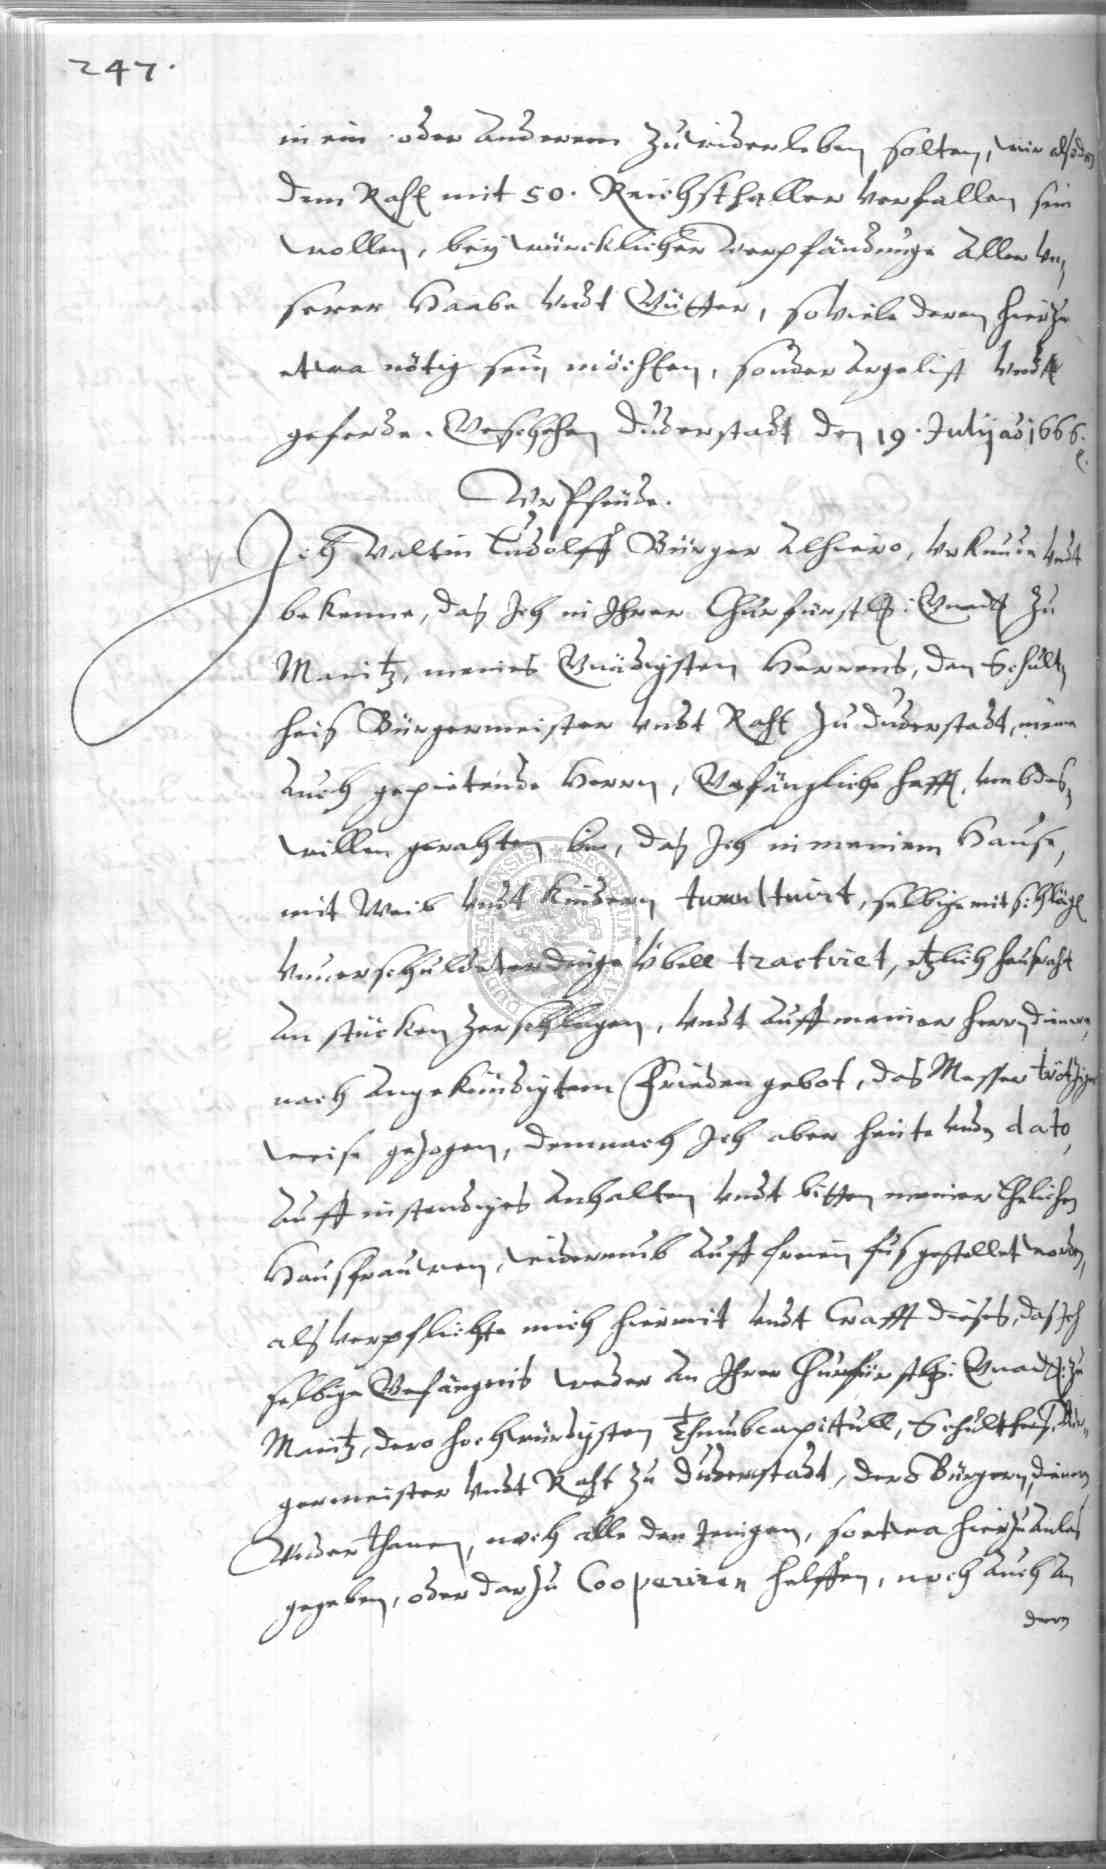 247.
in ein oder anderem zuwiderleben solten, wir alsdan
dem Raht mit 50. Reichsthaller verfallen sein
wollen, bey würcklicher verpfändunge aller un-
serer Haabe undt Gütter, so viele deren hierzu
etwa nötig sein möchten, sonder argelist undt
geferde. Geschehen Duderstadt den 19. Julij ao 1666.
Urpheide.
Ich Valtin Ludolff Bürger alhiero, urkunde undt
bekenne, das Ich in Ihrer Churfürstl: Gnad: zu
Maintz, meines Gnädigsten Herrens, den Schult-
heis Bürgermeister undt Raht zu Duderstadt, meine
auch gepietende Herrn, Gefängliche hafft, umb des-
willen gerahten bin, das Ich in meinem Hause,
mit Weib undt Kindern tumultuirt, selbige mit schläge
unverschuldeter dinge übell tractiret, etzlich hausraht
an stücken zerschlagen, undt auff meiner Herrn diener,
nach angekündigtem Frieden gebot, das Messer trötziger
weise gezogen, demnach Ich aber heute unden dato,
auff instendiges anhalten undt bitten meiner Ehelichen
Hausfrauwen, widerumb auff freien fus gestellet worden,
als verpflichte mich hiermit undt Crafft dieses, das Ich
selbige Gefängnis weder an Ihrer Churfürstl: Gnad: zu
Maintz, dero hochwürdigsten Thumbcapittull, Schultheis, Bür-
germeister undt Raht zu Duderstadt, dero Bürgern, dienern
Underthanen, noch alle den Jenigen, so etwa hierzu anlas
gegeben, oder darzu Cooperiren helffen, noch auch an
dern